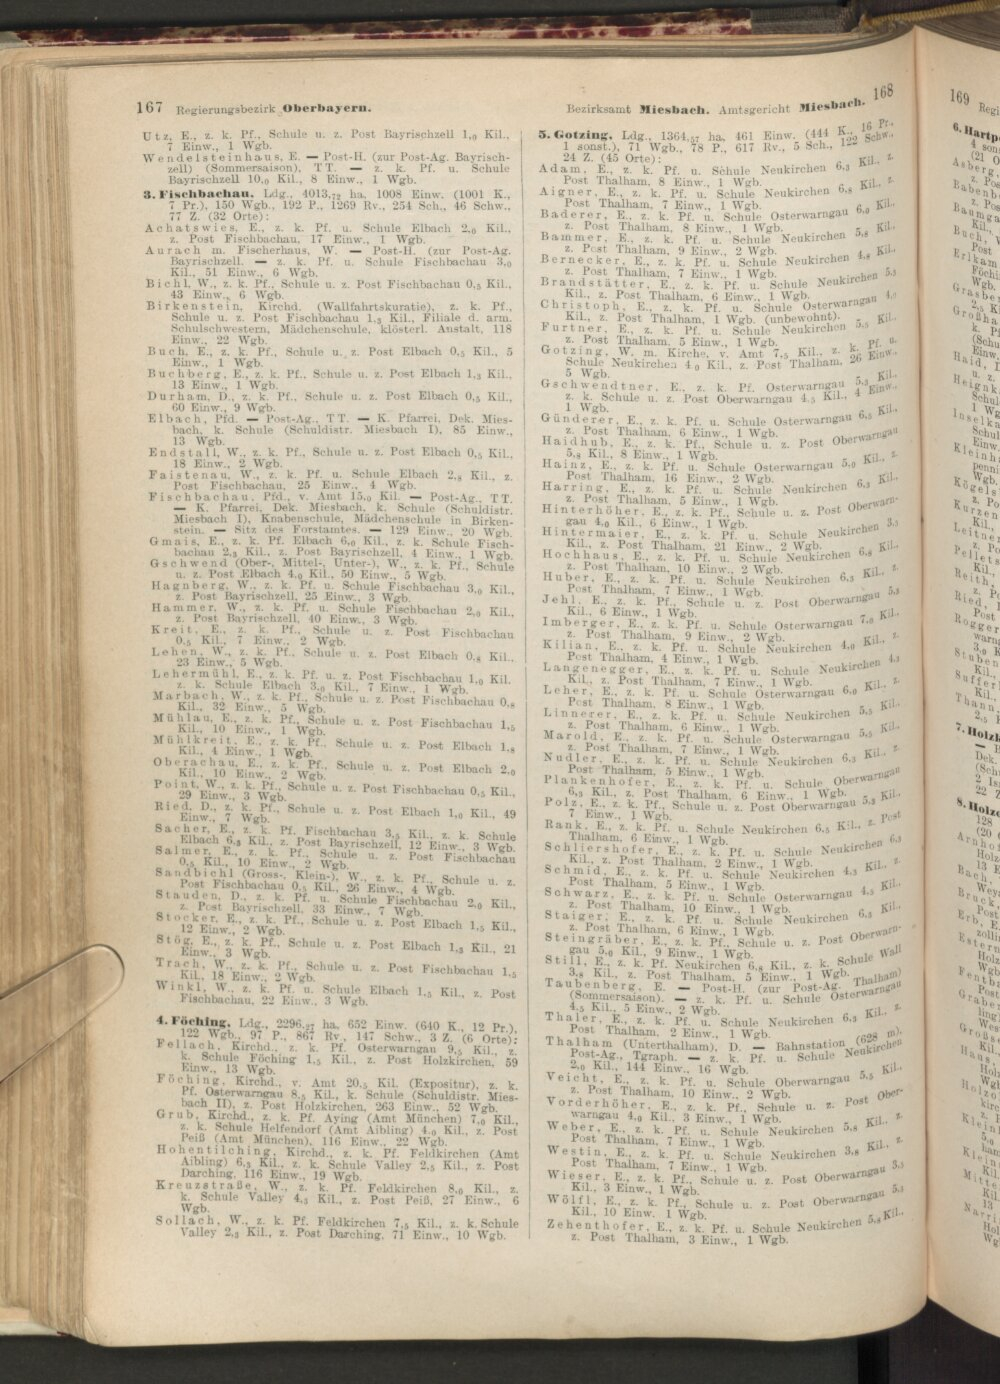 167 Regierungsbezirk Oberbayern.
Utz, E., z. k. Pf., Schule u. z. Post Bayrischzell 1,0 Kil.,
7 Einw., 1 Wgb.
Wendelsteinhaus, E. — Post-H. (zur Post-Ag. Bayrisch-
zell) (Sommersaison), TT. — z. k. Pf. u. Schule
Bayrischzell 10,0 Kil., 8 Einw., 1 Wgb.
3. Fischbachau. Ldg., 4013,72 ha, 1008 Einw. (1001 K.,
7 Pr.), 150 Wgb., 192 P., 1269 Rv., 254 Sch., 46 Schw.,
77 Z. (32 Orte):
Achatswies, E., z. k. Pf. u. Schule Elbach 2,0 Kil.,
z. Post Fischbachau, 17 Einw., 1 Wgb.
Aurach m. Fischerhaus, W. — Post-H. (zur Post-Ag.
Bayrischzell. — z. k. Pf. u. Schule Fischbachau 3,0
Kil., 51 Einw., 6 Wgb.
Bichl, W., z. k. Pf., Schule u. z. Post Fischbachau 0,5 Kil.,
43 Einw., 6 Wgb.
Birkenstein, Kirchd. (Wallfahrtskuratie), z. k. Pf.,
Schule u. z. Post Fischbachau 1,3 Kil., Filiale d. arm.
Schulschwestern, Mädchenschule, klösterl. Anstalt, 118
Einw., 22 Wgb.
Buch, E., z. k. Pf., Schule u. z. Post Elbach 0,5 Kil., 5
Einw., 1 Wgb.
Buchberg, E., z. k. Pf., Schule u. z. Post Elbach 1,3 Kil.,
13 Einw., 1 Wgb.
Durham, D., z. k. Pf., Schule u. z. Post Elbach 0,5 Kil.,
60 Einw., 9 Wgb.
Elbach, Pfd. — Post-Ag., TT. — K. Pfarrei, Dek. Mies-
bach, k. Schule (Schuldistr. Miesbach I), 85 Einw.,
13 Wgb.
Endstall, W., z. k. Pf., Schule u. z. Post Elbach 0,5 Kil.,
18 Einw., 2 Wgb.
Faistenau, W., z. k. Pf. u. Schule Elbach 2,8 Kil., z.
Post Fischbachau, 25 Einw., 4 Wgb.
Fischbachau, Pfd., v. Amt 15,0 Kil. — Post-Ag., TT.
— K. Pfarrei, Dek. Miesbach, k. Schule (Schuldistr.
Miesbach I), Knabenschule, Mädchenschule in Birken-
stein. — Sitz des Forstamtes. — 129 Einw., 20 Wgb.
Gmais, E., z. k. Pf. Elbach 6,0 Kil., z. k. Schule Fisch-
bachau 2,3 Kil., z. Post Bayrischzell, 4 Einw., 1 Wgb.
Gschwend (Ober-, Mittel-, Unter-), W., z. k. Pf., Schule
u. z. Post Elbach 4,0 Kil., 50 Einw., 5 Wgb.
Hagnberg, W., z. k. Pf. u. Schule Fischbachau 3,0 Kil.,
z. Post Bayrischzell, 25 Einw., 3 Wgb.
Hammer, W., z. k. Pf. u. Schule Fischbachau 2,0 Kil.,
z. Post Bayrischzell, 40 Einw., 3 Wgb.
Kreit, E., z. k. Pf., Schule u. z. Post Fischbachau
0,5 Kil., 7 Einw., 2 Wgb.
Lehen, W., z. k. Pf., Schule u. z. Post Elbach 0,8 Kil.,
23 Einw., 5 Wgb.
Lehermühl, E., z. k. Pf. u. z. Post Fischbachau 1,0 Kil.
z. k. Schule Elbach 3,0 Kil., 7 Einw., 1 Wgb.
Marbach, W., z. k. Pf., Schule u. z. Post Fischbachau 0,8
Kil., 32 Einw., 5 Wgb.
Mühlau, E., z. k. Pf., Schule u. z. Post Fischbachau 1,5
Kil., 10 Einw., 1 Wgb.
Mühlkreit, E., z. k. Pf., Schule u. z. Post Elbach 1,8
Kil., 4 Einw., 1 Wgb.
Oberachau, E., z. k. Pf., Schule u. z. Post Elbach 2,0
Kil., 10 Einw., 2 Wgb.
Point, W., z. k. Pf., Schule u. z. Post Fischbachau 0,5 Kil.,
29 Einw., 3 Wgb.
Ried, D., z. k. Pf., Schule u. z. Post Elbach 1,0 Kil., 49
Einw., 7 Wgb.
Sacher, E., z. k. Pf. Fischbachau 3,5 Kil., z. k. Schule
Elbach 6,8 Kil., z. Post Bayrischzell, 12 Einw., 3 Wgb.
Salmer, E., z. k. Pf., Schule u. z. Post Fischbachau
0,5 Kil., 10 Einw., 2 Wgb.
Sandbichl (Gross-, Klein-), W., z. k. Pf., Schule u. z.
Post Fischbachau 0,5 Kil., 26 Einw., 4 Wgb.
Stauden, D., z. k. Pf. u. Schule Fischbachau 2,0 Kil.,
z. Post Bayrischzell, 33 Einw., 7 Wgb.
Stocker, E., z. k. Pf., Schule u. z. Post Elbach 1,5 Kil.,
12 Einw., 2 Wgb.
Stög, E., z. k. Pf., Schule u. z. Post Elbach 1,3 Kil., 21
Einw., 3 Wgb.
Trach, W., z. k. Pf., Schule u. z. Post Fischbachau 1,5
Kil., 18 Einw., 2 Wgb.
Winkl, W., z. k. Pf. u. Schule Elbach 1,5 Kil., z. Post
Fischbachau, 22 Einw., 3 Wgb.
4. Föching. Ldg., 2296,87 ha, 652 Einw. (640 K., 12 Pr.),
122 Wgb., 97 P., 867 Rv., 147 Schw., 3 Z. (6 Orte):
Fellach, Kirchd., z. k. Pf. Osterwarngau 9,5 Kil., z.
k. Schule Föching 1,5 Kil., z. Post Holzkirchen, 59
Einw., 13 Wgb.
Föching, Kirchd., v. Amt 20,5 Kil. (Expositur), z. k.
Pf. Osterwarngau 8,5 Kil., k. Schule (Schuldistr. Mies-
bach II), z. Post Holzkirchen, 263 Einw., 52 Wgb.
Grub, Kirchd., z. k. Pf. Aying (Amt München) 7,0 Kil.,
z. k. Schule Helfendorf (Amt Aibling) 4,0 Kil., z. Post
Peiß (Amt München), 116 Einw., 22 Wgb.
Hohentilching, Kirchd., z. k. Pf. Feldkirchen (Amt
Aibling) 6,3 Kil., z. k. Schule Valley 2,5 Kil., z. Post
Darching, 116 Einw., 19 Wgb.
Kreuzstraße, W., z. k. Pf. Feldkirchen 8,0 Kil., z.
k. Schule Valley 4,5 Kil., z. Post Peiß, 27 Einw., 6
Wgb.
Sollach, W., z. k. Pf. Feldkirchen 7,5 Kil., z. k. Schule
Valley 2,3 Kil., z. Post Darching, 71 Einw., 10 Wgb.
Bezirksamt Miesbach. Amtsgericht Miesbach. 168
5. Gotzing. Ldg., 1364,57 ha, 461 Einw. (444 K., 16 Pr.,
1 sonst.), 71 Wgb., 78 P., 617 Rv., 5 Sch., 122 Schw.,
24 Z. (45 Orte):
Adam, E., z. k. Pf. u. Schule Neukirchen 6,3 Kil., z.
Post Thalham, 8 Einw., 1 Wgb.
Aigner, E., z. k. Pf. u. Schule Neukirchen 6,8 Kil., z.
Post Thalham, 7 Einw., 1 Wgb.
Baderer, E., z. k. Pf. u. Schule Osterwarngau 6,0 Kil.,
z. Post Thalham, 8 Einw., 1 Wgb.
Bammer, E., z. k. Pf. u. Schule Neukirchen 5,8 Kil.,
z. Post Thalham, 9 Einw., 2 Wgb.
Bernecker, E., z. k. Pf. u. Schule Neukirchen 4,8 Kil.,
z. Post Thalham, 7 Einw., 1 Wgb.
Brandstätter, E., z. k. Pf. u. Schule Neukirchen 5,3
Kil., z. Post Thalham, 6 Einw., 1 Wgb.
Christoph, E., z. k. Pf. u. Schule Osterwarngau 4,0
Kil., z. Post Thalham, 1 Wgb. (unbewohnt).
Furtner, E., z. k. Pf. u. Schule Neukirchen 5,5 Kil.,
z. Post Thalham, 5 Einw., 1 Wgb.
Gotzing, W. m. Kirche, v. Amt 7,5 Kil., z. k. Pf. u.
Schule Neukirchen 4,0 Kil., z. Post Thalham, 26 Einw.,
5 Wgb.
Gschwendtner, E., z. k. Pf. Osterwarngau 5,3 Kil.,
z. k. Schule u. z. Post Oberwarngau 4,5 Kil., 4 Einw.,
1 Wgb.
Günderer, E., z. k. Pf. u. Schule Osterwarngau 6,5 Kil.,
z. Post Thalham, 6 Einw., 1 Wgb.
Haidhub, E., z. k. Pf., Schule u. z. Post Oberwarngau
5,8 Kil., 8 Einw., 1 Wgb.
Hainz, E., z. k. Pf. u. Schule Osterwarngau 5,0 Kil., z.
Post Thalham, 16 Einw., 2 Wgb.
Harring, E., z. k. Pf. u. Schule Neukirchen 6,3 Kil.,
z. Post Thalham, 5 Einw., 1 Wgb.
Hinterhöher, E., z. k. Pf., Schule u. z. Post Oberwarn-
gau 4,0 Kil., 6 Einw., 1 Wgb.
Hintermaier, E., z. k. Pf. u. Schule Neukirchen 3,5
Kil., z. Post Thalham, 21 Einw., 2 Wgb.
Hochhaus, E., z. k. Pf. u. Schule Neukirchen 6,8 Kil.,
z. Post Thalham, 10 Einw., 2 Wgb.
Huber, E., z. k. Pf. u. Schule Neukirchen 6,3 Kil., z.
Post Thalham, 7 Einw., 1 Wgb.
Jehl, E., z. k. Pf., Schule u. z. Post Oberwarngau 5,3
Kil., 6 Einw., 1 Wgb.
Imberger, E., z. k. Pf. u. Schule Osterwarngau 7,0 Kil.,
z. Post Thalham, 9 Einw., 2 Wgb.
Kilian, E., z. k. Pf. u. Schule Neukirchen 4,0 Kil., z.
Post Thalham, 4 Einw., 1 Wgb.
Langenegger, E., z. k. Pf. u. Schule Neukirchen 4,3
Kil., z. Post Thalham, 7 Einw., 1 Wgb.
Leher, E., z. k. Pf. u. Schule Osterwarngau 6,0 Kil., z.
Post Thalham, 8 Einw., 1 Wgb.
Linnerer, E., z. k. Pf. u. Schule Neukirchen 5,5 Kil.,
z. Post Thalham, 6 Einw., 1 Wgb.
Marold, E., z. k. Pf. u. Schule Osterwarngau 5,5 Kil.,
z. Post Thalham, 7 Einw., 1 Wgb.
Nudler, E., z. k. Pf. u. Schule Neukirchen 6,3 Kil., z.
Post Thalham, 5 Einw., 1 Wgb.
Plankenhofer, E., z. k. Pf. u. Schule Oberwarngau
6,3 Kil., z. Post Thalham, 6 Einw., 1 Wgb.
Polz, E., z. k. Pf., Schule u. z. Post Oberwarngau 5,3 Kil.,
7 Einw., 1 Wgb.
Rank, E., z. k. Pf. u. Schule Neukirchen 6,5 Kil., z. Post
Thalham, 6 Einw., 1 Wgb.
Schliershofer, E., z. k. Pf. u. Schule Neukirchen 6,3
Kil., z. Post Thalham, 2 Einw., 1 Wgb.
Schmid, E., z. k. Pf. u. Schule Neukirchen 4,3 Kil., z.
Post Thalham, 5 Einw., 1 Wgb.
Schwarz, E., z. k. Pf. u. Schule Osterwarngau 4,5 Kil.,
z. Post Thalham, 10 Einw., 1 Wgb.
Staiger, E., z. k. Pf. u. Schule Neukirchen 6,3 Kil.,
z. Post Thalham, 6 Einw., 1 Wgb.
Steingräber, E., z. k. Pf., Schule u. z. Post Oberwarn-
gau 5,0 Kil., 9 Einw., 1 Wgb.
Still, E., z. k. Pf. Neukirchen 6,8 Kil., z. k. Schule Wall
3,8 Kil., z. Post Thalham, 5 Einw., 1 Wgb.
Taubenberg, E. — Post-H. (zur Post-Ag. Thalham)
(Sommersaison). — z. k. Pf. u. Schule Osterwarngau
4,5 Kil., 5 Einw., 2 Wgb.
Thaler, E., z. k. Pf. u. Schule Neukirchen 6,3 Kil., z.
Post Thalham, 2 Einw., 1 Wgb.
Thalham (Unterthalham), D. — Bahnstation (628 m),
Post-Ag., Tgraph. — z. k. Pf. u. Schule Neukirchen
2,0 Kil., 144 Einw., 16 Wgb.
Veicht, E., z. k. Pf. u. Schule Oberwarngau 5,5 Kil.,
z. Post Thalham, 10 Einw., 2 Wgb.
Vorderhöher, E., z. k. Pf., Schule u. z. Post Ober-
warngau 4,0 Kil., 3 Einw., 1 Wgb.
Weber, E., z. k. Pf. u. Schule Neukirchen 5,8 Kil., z.
Post Thalham, 7 Einw., 1 Wgb.
Westin, E., z. k. Pf. u. Schule Neukirchen 3,8 Kil., z.
Post Thalham, 7 Einw., 1 Wgb.
Wieser, E., z. k. Pf., Schule u. z. Post Oberwarngau 3,5
Kil., 3 Einw., 1 Wgb.
Wölfl, E., z. k. Pf., Schule u. z. Post Oberwarngau 5,3
Kil., 10 Einw. 1 Wgb.
Zehenthofer, E., z. k. Pf. u. Schule Neukirchen 5,8 Kil.,
z. Post Thalham, 3 Einw., 1 Wgb.
169